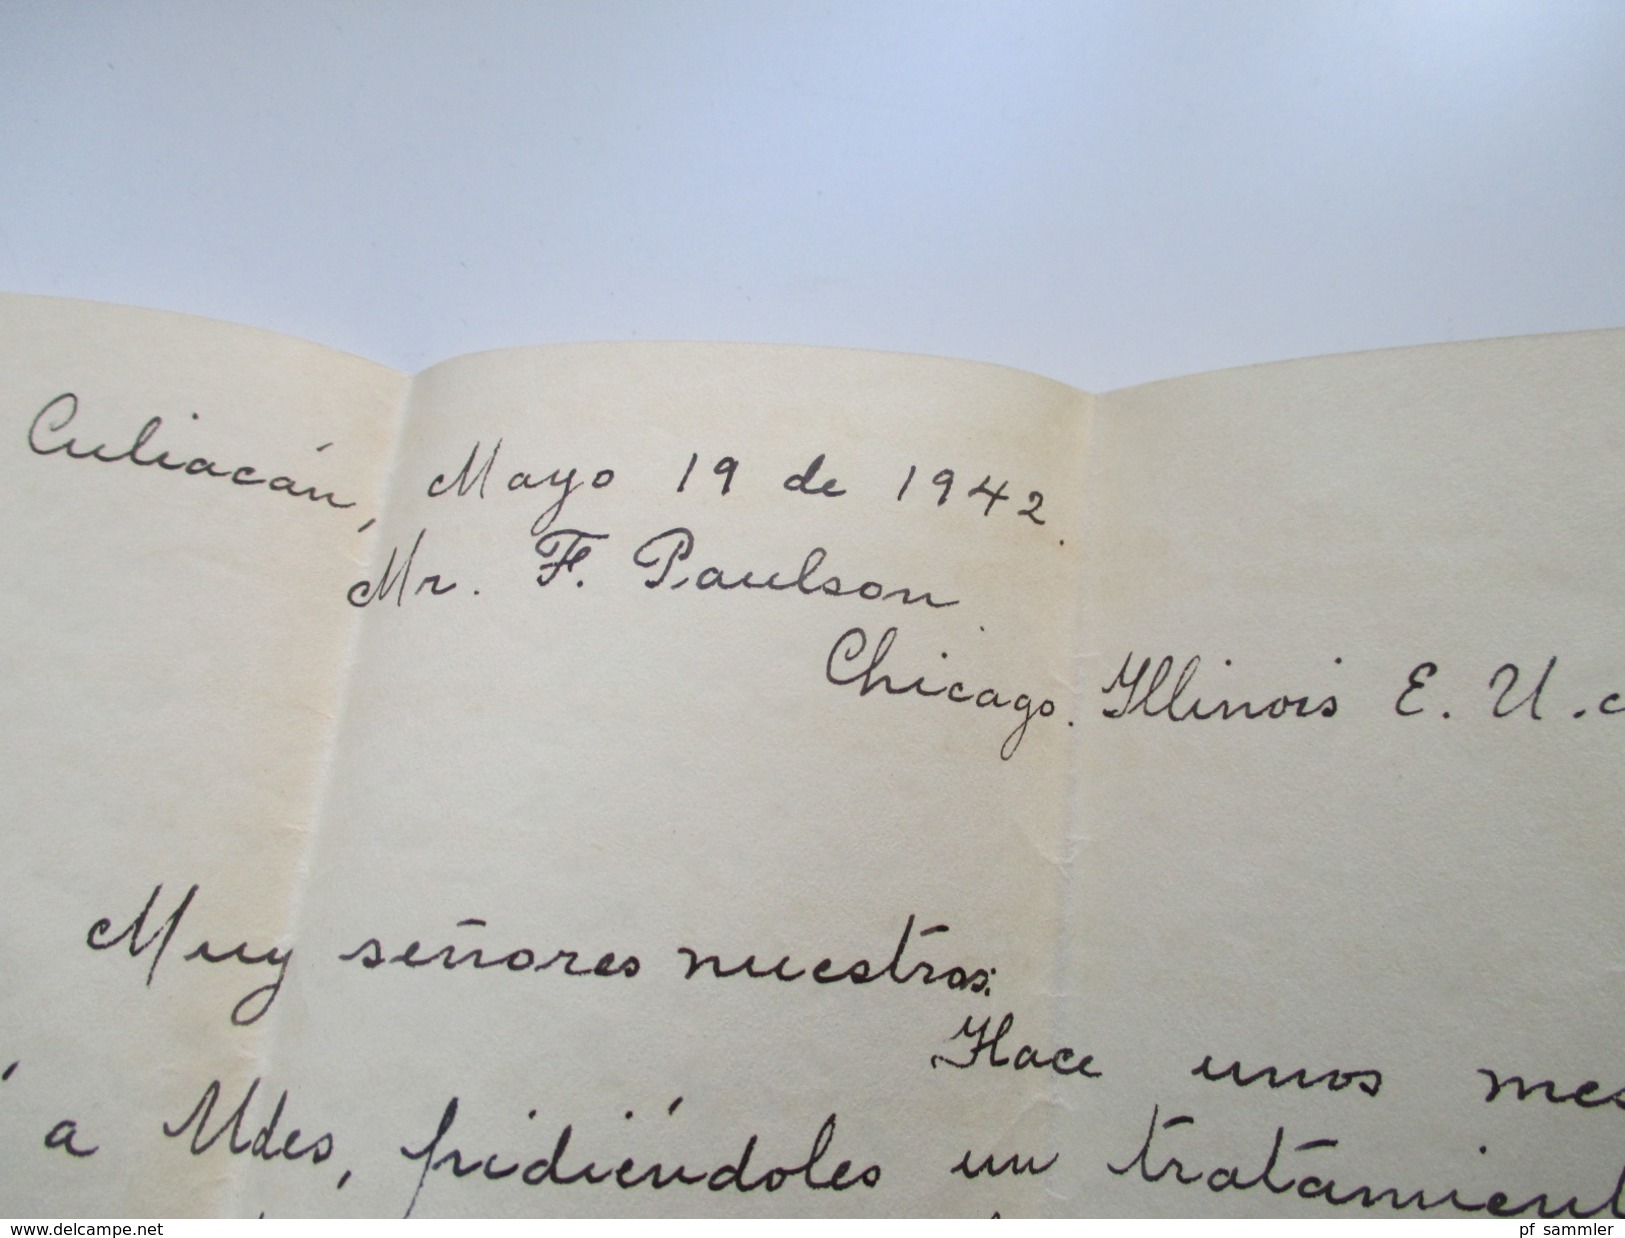 Culiacán, Mayo 19 de 1942.
Mr. F. Paulson
Chicago. Illinois E. U.
Muy señores nuestros:
Hace unos mes
a Udes, pidiéndoles un tratamient
www.delcampe.net
pf_sammler